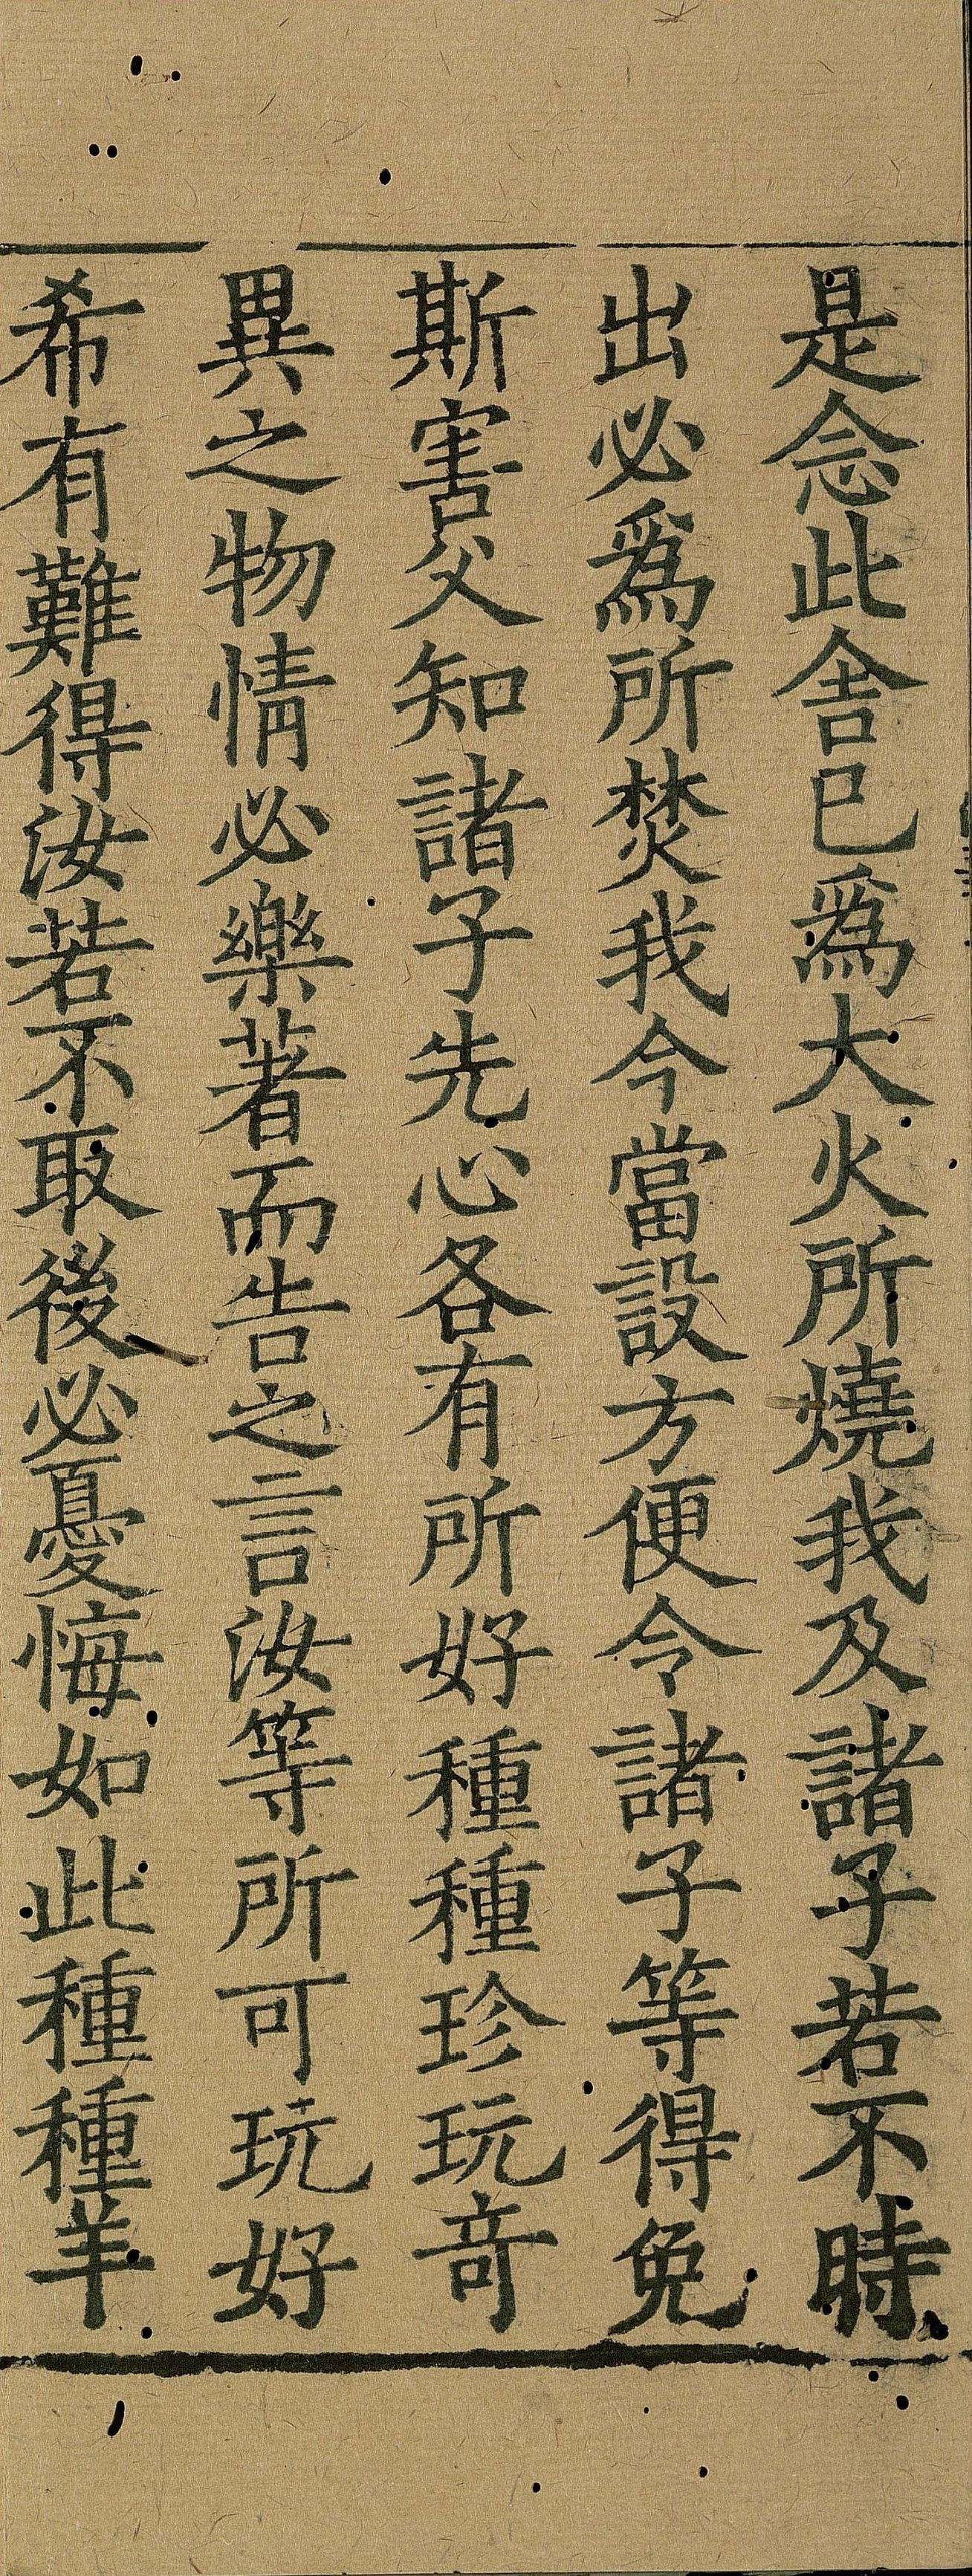 是念此舍已爲大火所燒我及諸子若不時
出必爲所焚我今當設方便令諸子等得免
斯害父知諸子先心各有所好種種珍玩奇
異之物情必樂著而告之言汝等所可玩好
希有難得汝若不取後必憂悔如此種種羊